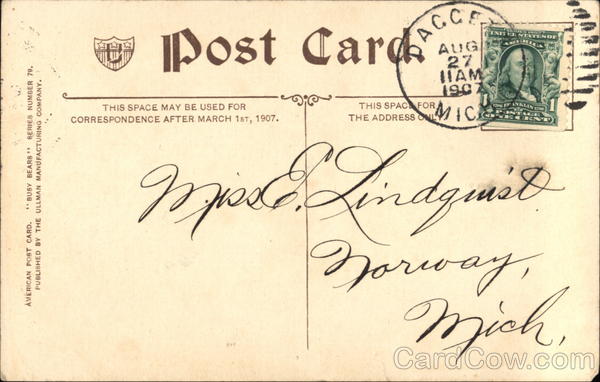 Post Card.
THIS SPACE MAY BE USED FOR
CORRESPONDENCE AFTER MARCH 1ST, 1907.
THIS SPACE FOR
THE ADDRESS ONLY
DAGGETT
AUG
27
11AM
1907
MICH.
UNITED STATES OF
AMERICA
FRANKLIN
1
POSTAGE
ONE CENT
Miss E. Lindquist
Norway,
Mich,
AMERICAN POST CARD. "BUSY BEARS" SERIES NUMBER 79.
PUBLISHED BY THE ULLMAN MANUFACTURING COMPANY.
CardCow.com